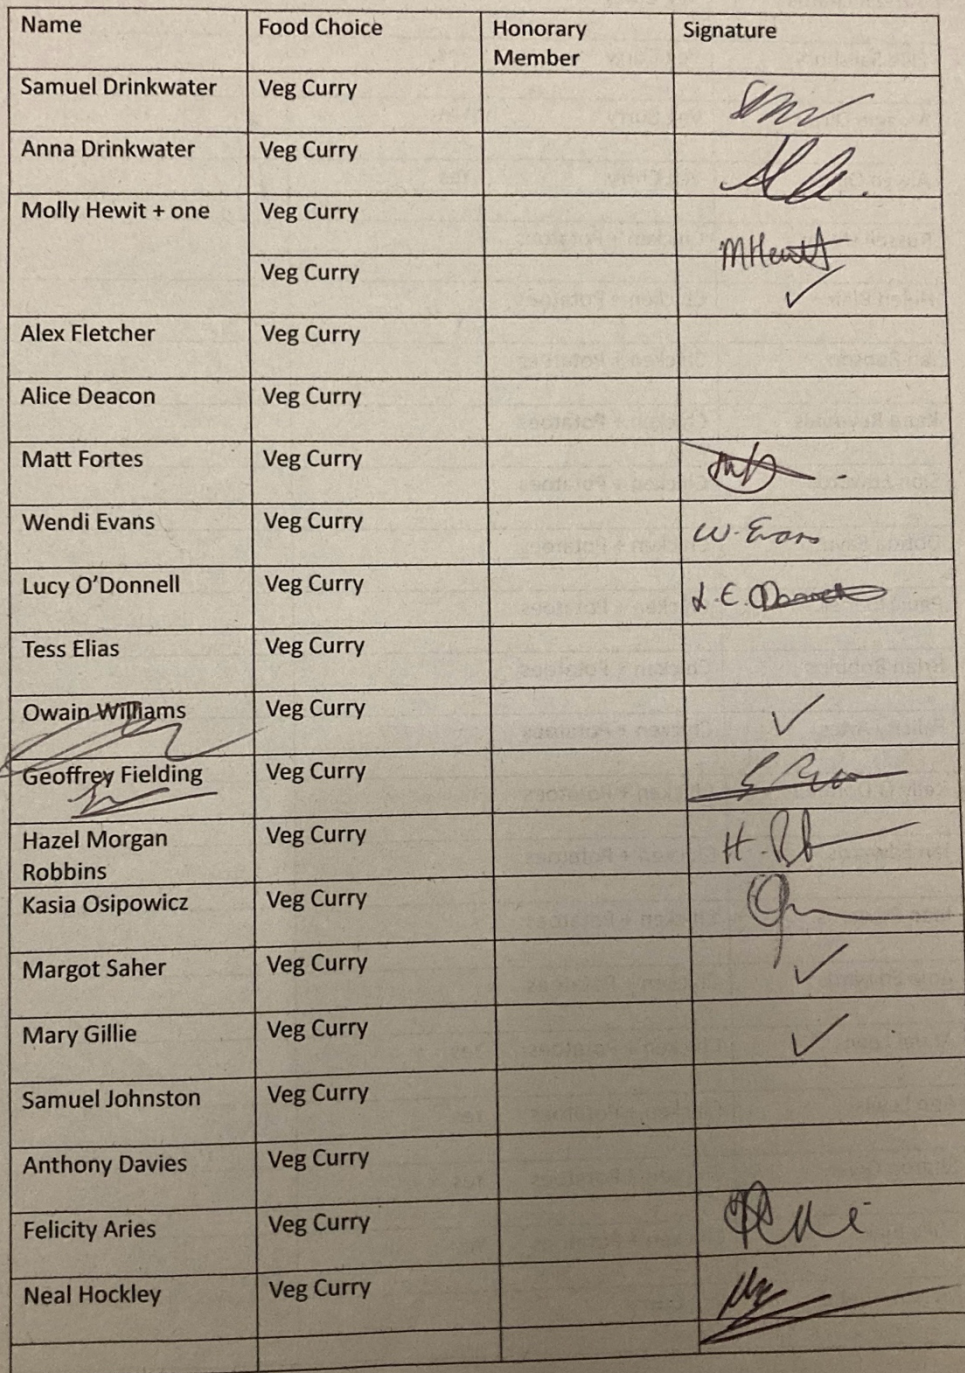 Name Food Choice Honorary Member Signature
Samuel Drinkwater Veg Curry
Anna Drinkwater Veg Curry
Molly Hewit + one Veg Curry MHewitt
Veg Curry ✓
Alex Fletcher Veg Curry
Alice Deacon Veg Curry
Matt Fortes Veg Curry
Wendi Evans Veg Curry W. Evans
Lucy O'Donnell Veg Curry L.E.
Tess Elias Veg Curry
Owain Williams Veg Curry ✓
Geoffrey Fielding Veg Curry
Hazel Morgan Robbins Veg Curry
Kasia Osipowicz Veg Curry
Margot Saher Veg Curry ✓
Mary Gillie Veg Curry ✓
Samuel Johnston Veg Curry
Anthony Davies Veg Curry
Felicity Aries Veg Curry
Neal Hockley Veg Curry